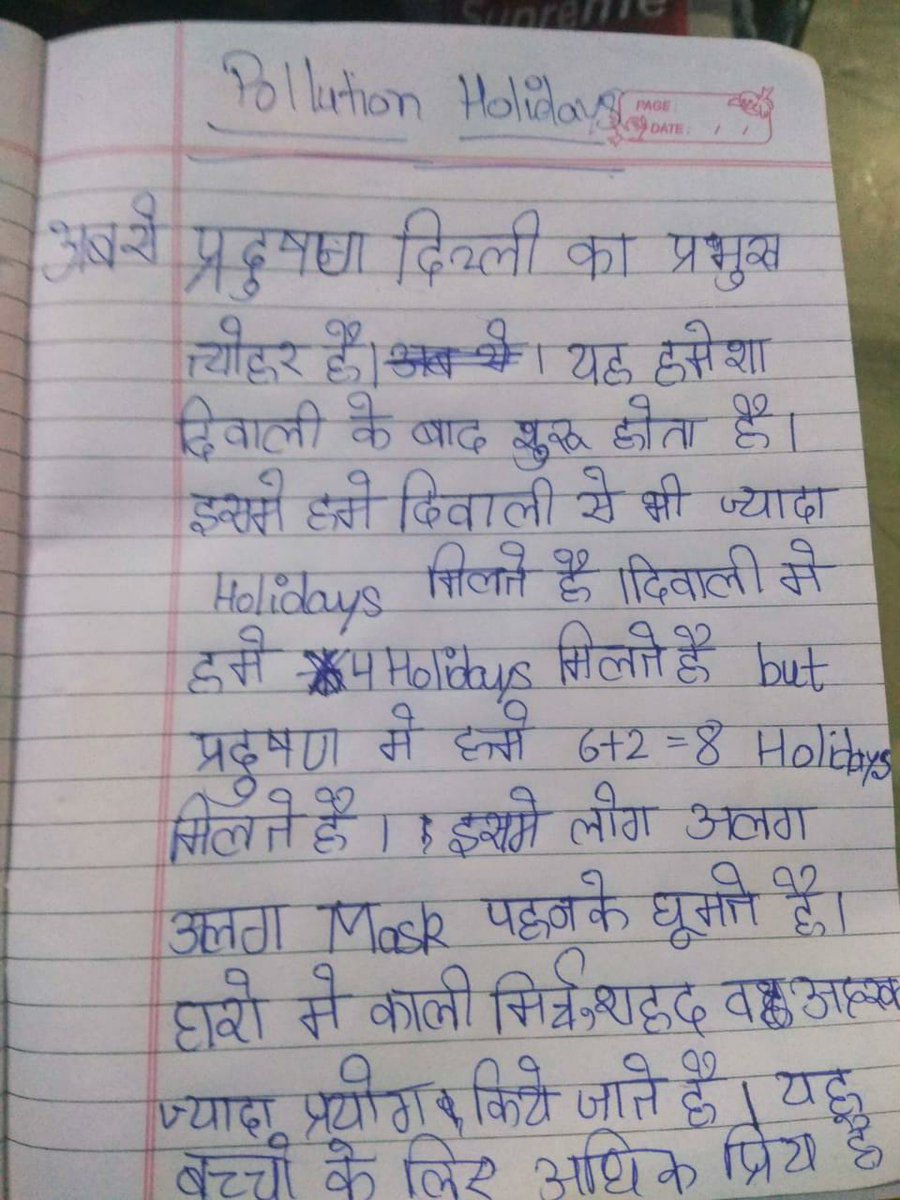 Supreme
Pollution Holidays
PAGE:
DATE: / /
अबसे प्रदुषण दिल्ली का प्रमुख
त्योहर है। अब से । यह हमेशा
दिवाली के बाद शुरू होता है।
इसमे हमे दिवाली से भी ज्यादा
Holidays मिलते है।दिवाली मे
हमे 4 Holidays मिलते है but
प्रदुषण मे हमे 6+2=8 Holidays
मिलते है। इसमे लोग अलग
अलग Mask पहनके घूमते है।
घरो मे काली मिर्च,शहद व अदरक
ज्यादा प्रयोग किये जाते है। यह
बच्चो के लिए अधिक प्रिय है